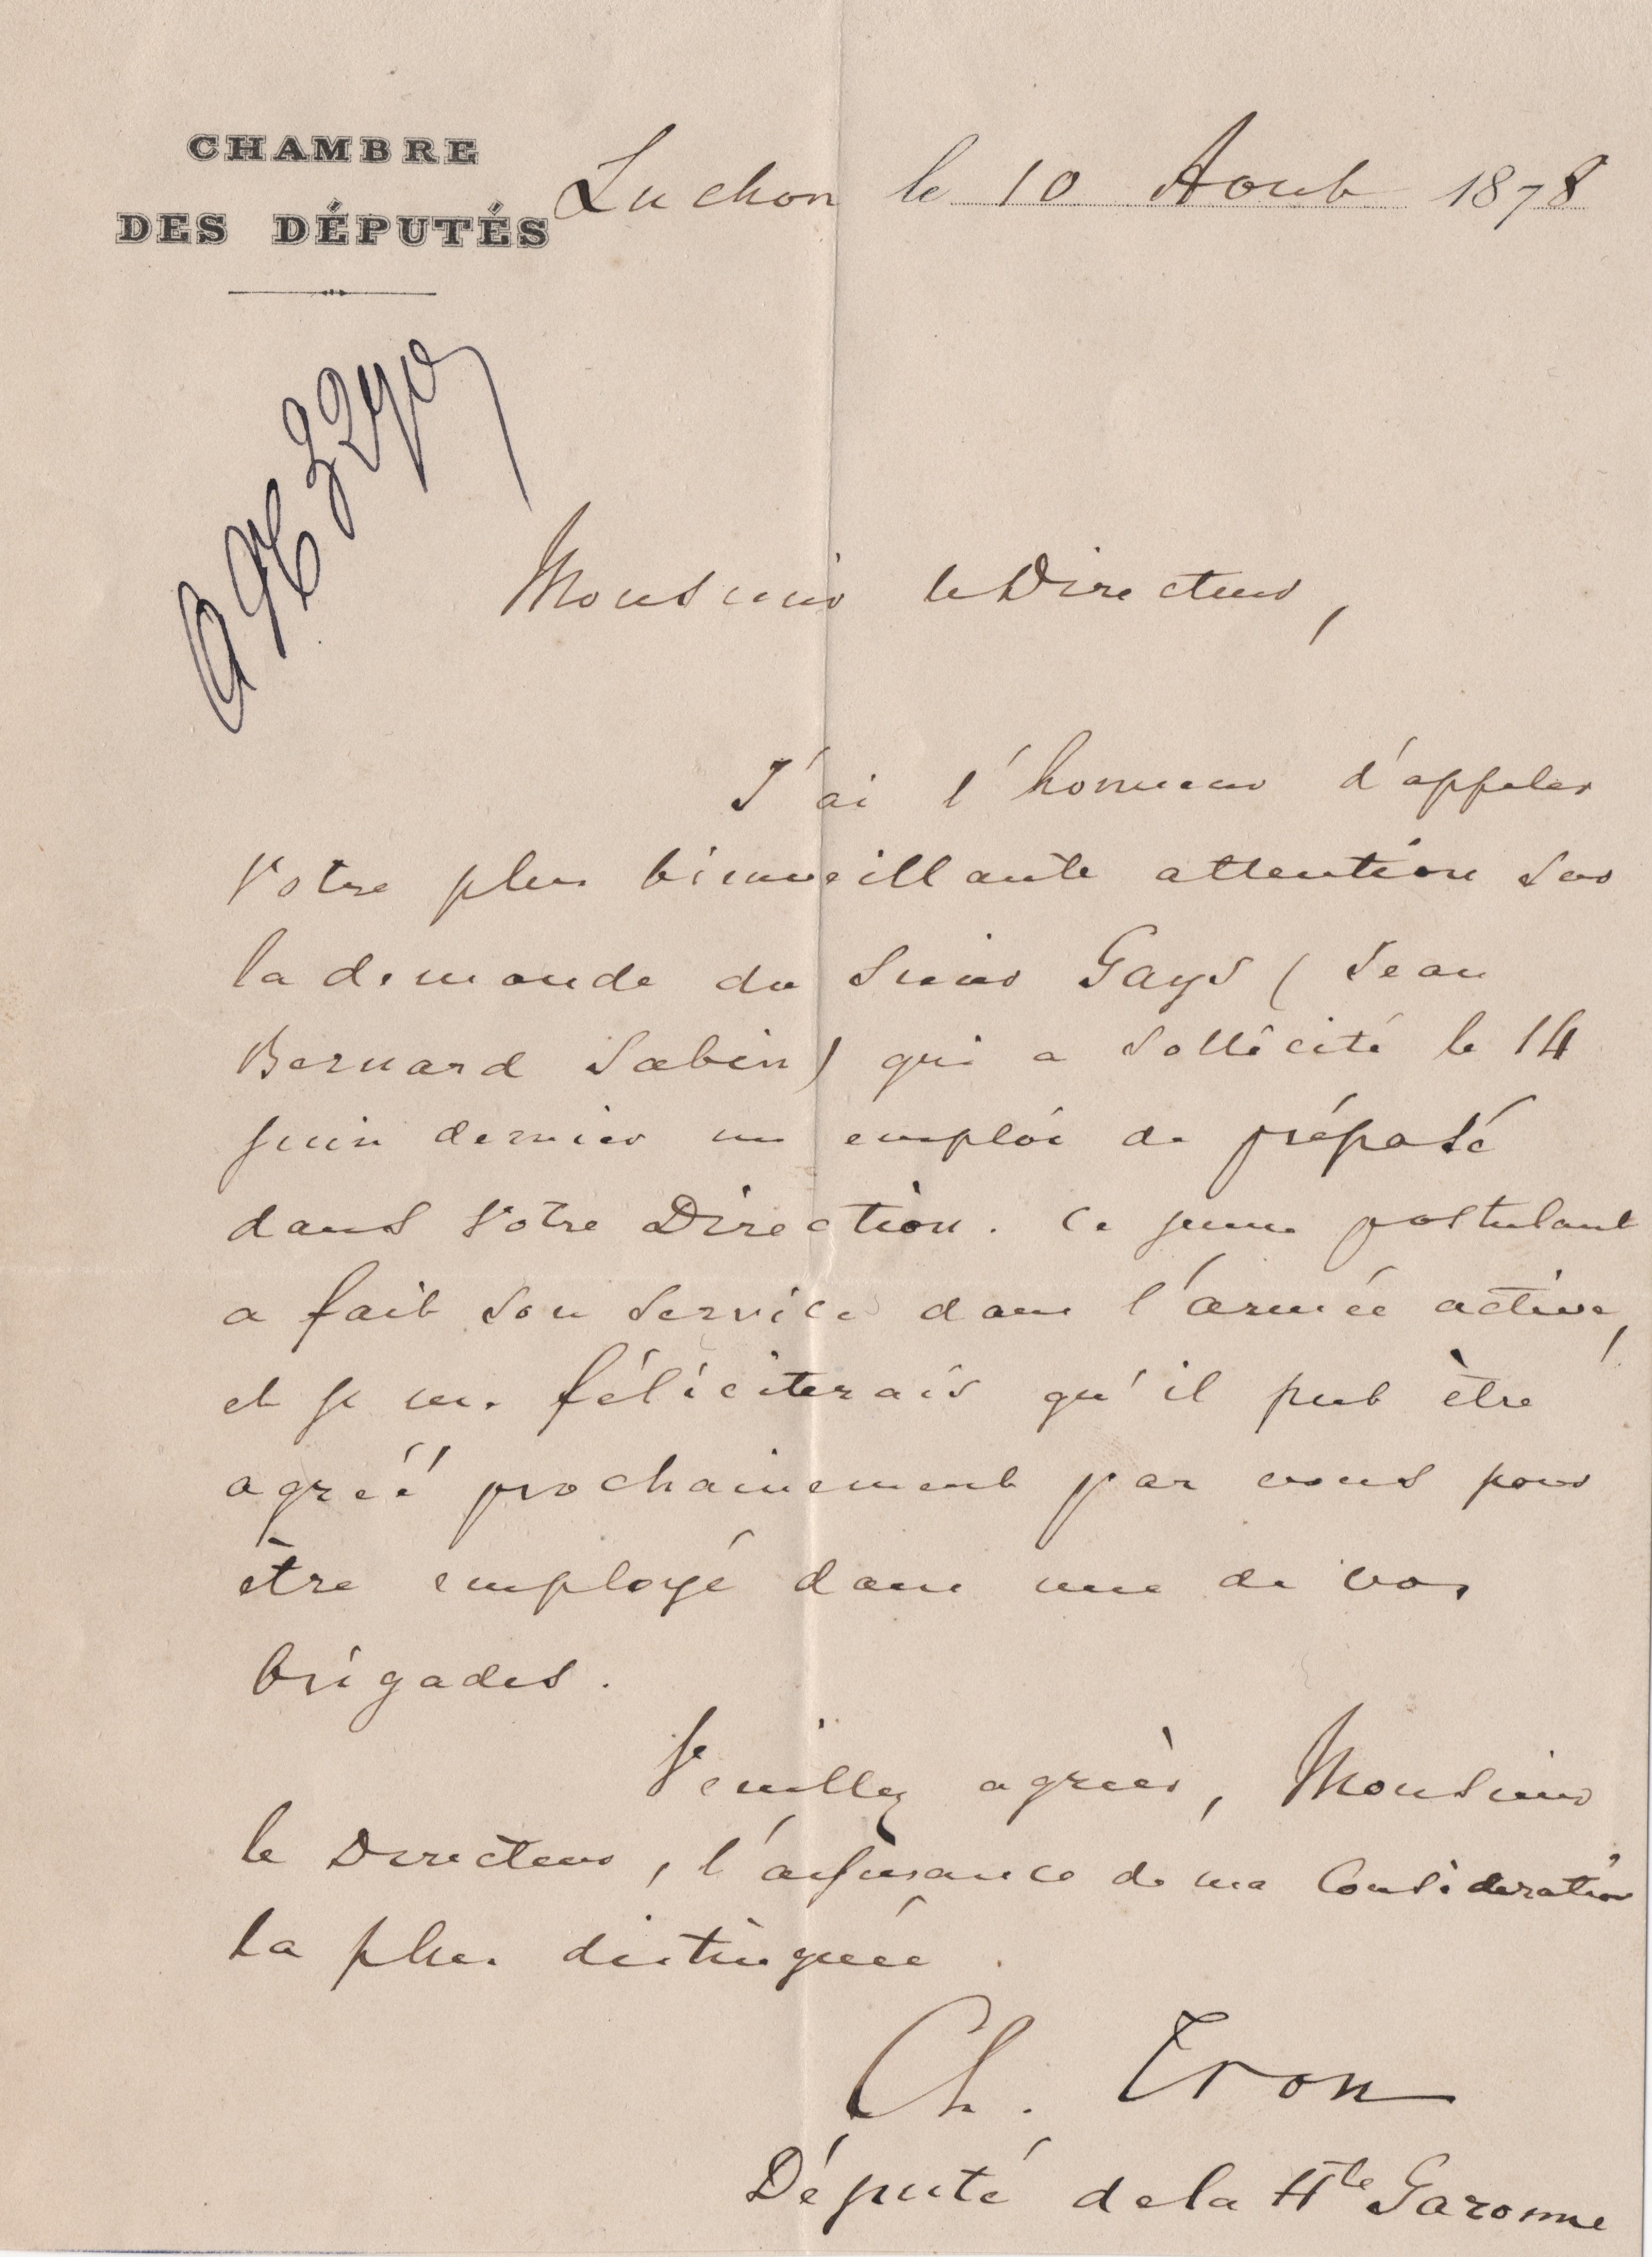 CHAMBRE
DES DÉPUTÉS
Luchon le 10 Aout 1878
Monsieur le Directeur,
J'ai l'honneur d'appeler
Votre plus bienveillante attention sur
la demande du Sieur Gays (Jean
Bernard Sabin) qui a sollicité le 14
juin dernier un emploi de préposé
dans Votre Direction. Ce jeune postulant
a fait son service dans l'armée active,
et je me féliciterais qu'il put être
agréé prochainement par vous pour
être employé dans une de vos
brigades.
Veuillez agréer, Monsieur
le Directeur, l'assurance de ma Considération
la plus distinguée.
Ch. Tron
Député de la Hte Garonne